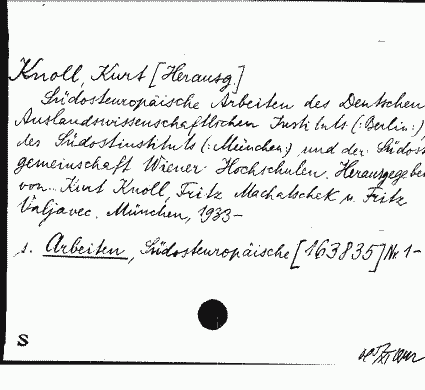 Knoll, Kurt [Herausg.]
Südosteuropäische Arbeiten des Deutschen
Auslandswissenschaftlichen Instituts (:Berlin:),
des Südostinstituts (:München:) und der Südost
gemeinschaft Wiener Hochschulen. Herausgegeben
von Kurt Knoll, Fritz Machatschek u. Fritz
Valjavec. München, 1933-
s. Arbeiten, Südosteuropäische [163835] Nr 1-
S